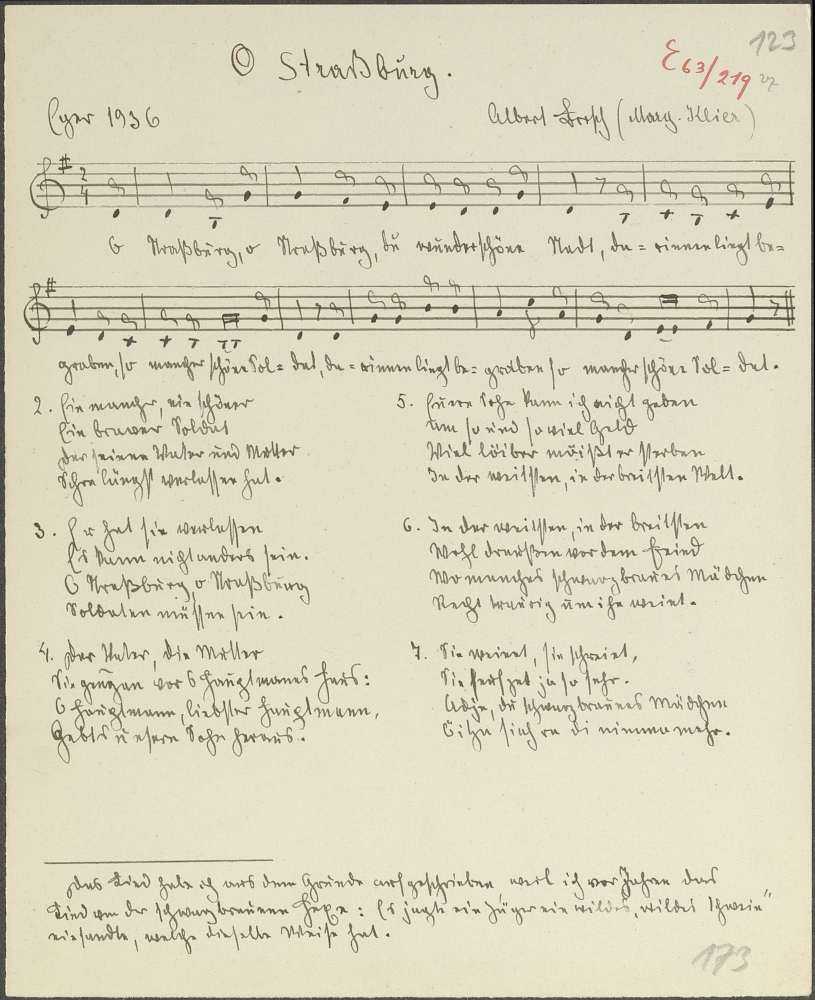 123
O Straßburg.
E63/219
Eger 1936
Albert Brosch (Marg. Klier)
2
4
O Straßburg, o Straßburg, du wunderschöne Stadt, da = rinnen liegt be=
graben, so mancher schöne Sol= dat, da = rinnen liegt be= graben so mancher schöne Sol= dat.
2. Ein mancher, ein schöner
Ein braver Soldat
Der seinen Vater und Motter
Schon längst verlassen hat.
3. Er hat sie verlassen
Es kann nicht anders sein.
O Straßburg, o Straßburg
Soldaten müssen sein.
4. Der Vater, die Motter
Sie gengan vors Hauptmanns Haus:
O Hauptmann, liebster Hauptmann,
Gebts unsern Sohn heraus.
5. Euern Sohn kann ich nicht geben
Um so und so viel Geld
Viel löiber möißt er sterben
In der weitsten, in der breitsten Welt.
6. In der weitsten, in der breitsten
Wohl draußen vor dem Feind
Wo manches schwarzbraunes Mädchen
Recht traurig um ihn weint.
7. Sie weinet, sie schreiet,
Sie seufzet ja so sehr.
Adje, du schwarzbraunes Mädchen
siach di nimmamehr.
Das Lied habe ich aus dem Grunde aufgeschrieben weil ich vor Jahren das
Lied von der schwarzbraunen Hexe: Es jagte ein Jäger ein wildes, wildes Schwein"
einsandte, welche dieselbe Weise hat.
173